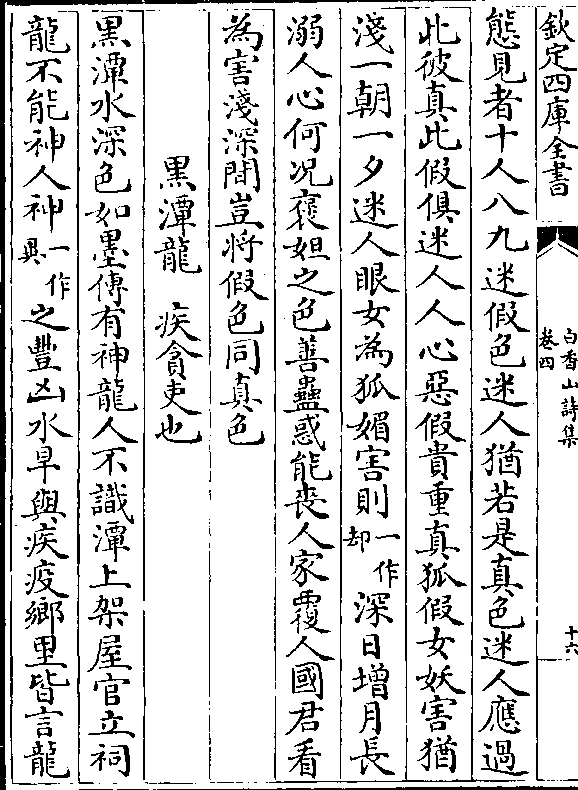 欽定四庫全書
白香山詩集
卷四
十六
態見者十人八九迷假色迷人猶若是真色迷人應過
此彼真此假俱迷人人心惡假貴重真狐假女妖害猶
淺一朝一夕迷人眼女為狐媚害則一作却深日增月長
溺人心何况褒妲之色善蠱惑能喪人家覆人國君看
為害淺深間豈將假色同真色
黒潭龍 疾貪吏也
黒潭水深色如墨傳有神龍人不識潭上架屋官立祠
龍不能神人神一作與之豐凶水旱與疾疫鄉里皆言龍